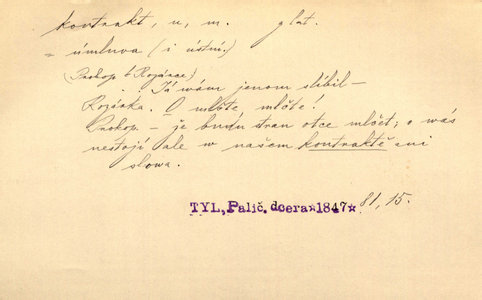 kontrakt, u, m. glat.
= úmluva (i ústní)
(Prokop k Rozárce)
Já wám jenom slíbil –
Rozárka. O mlčte mlčte!
Prokop. – že budu stran otce mlčet; o wás
nestojí ale w našem kontraktě ani
slowa.
TYL, Palič. dcera*1847* 81, 15.